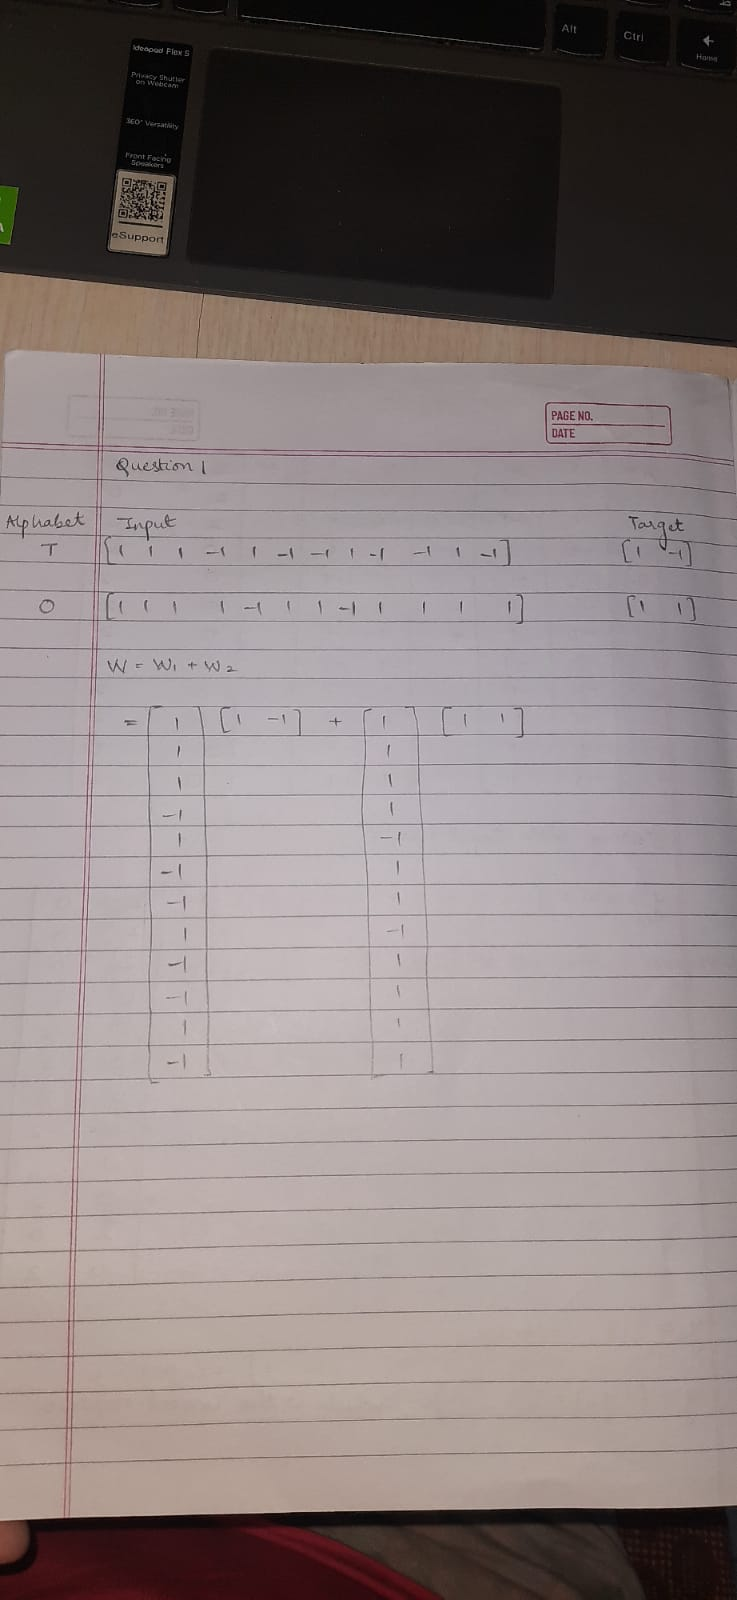 Alt Ctrl Home
Ideapad Flex 5
Privacy Shutter
on Webcam
360° Versatility
Front Facing
Speakers
eSupport
PAGE NO.
DATE
Question 1
Alphabet Input Target
T [1 1 1 -1 1 -1 -1 1 -1 -1 1 -1] [1 -1]
O [1 1 1 1 -1 1 1 -1 1 1 1 1] [1 1]
W = W1 + W2
= [1 [1 -1] + [1 [1 1]
1 1
1 1
-1 1
1 -1
-1 1
-1 1
1 -1
-1 1
-1 1
1 1
-1] 1]